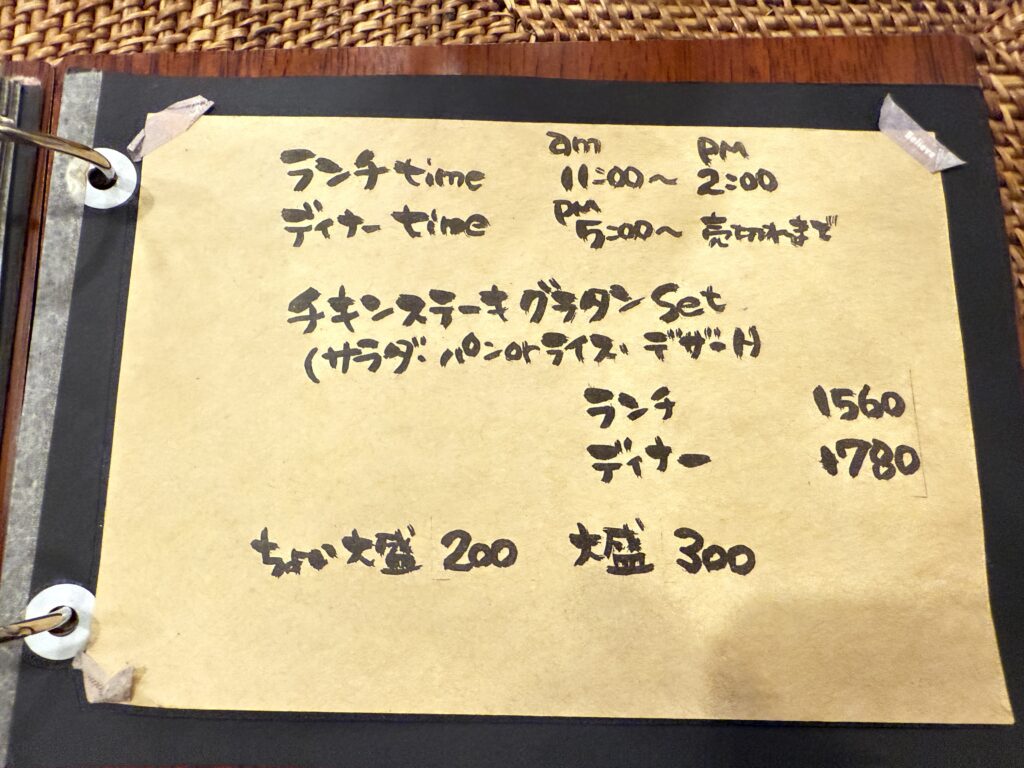 ランチtime am 11:00〜 pm 2:00
ディナーtime pm 5:00〜 売切れまで
チキンステーキグラタンSet
(サラダ・パンorライス・デザート)
ランチ 1560
ディナー 1780
ちょい大盛 200 大盛 300
Believe